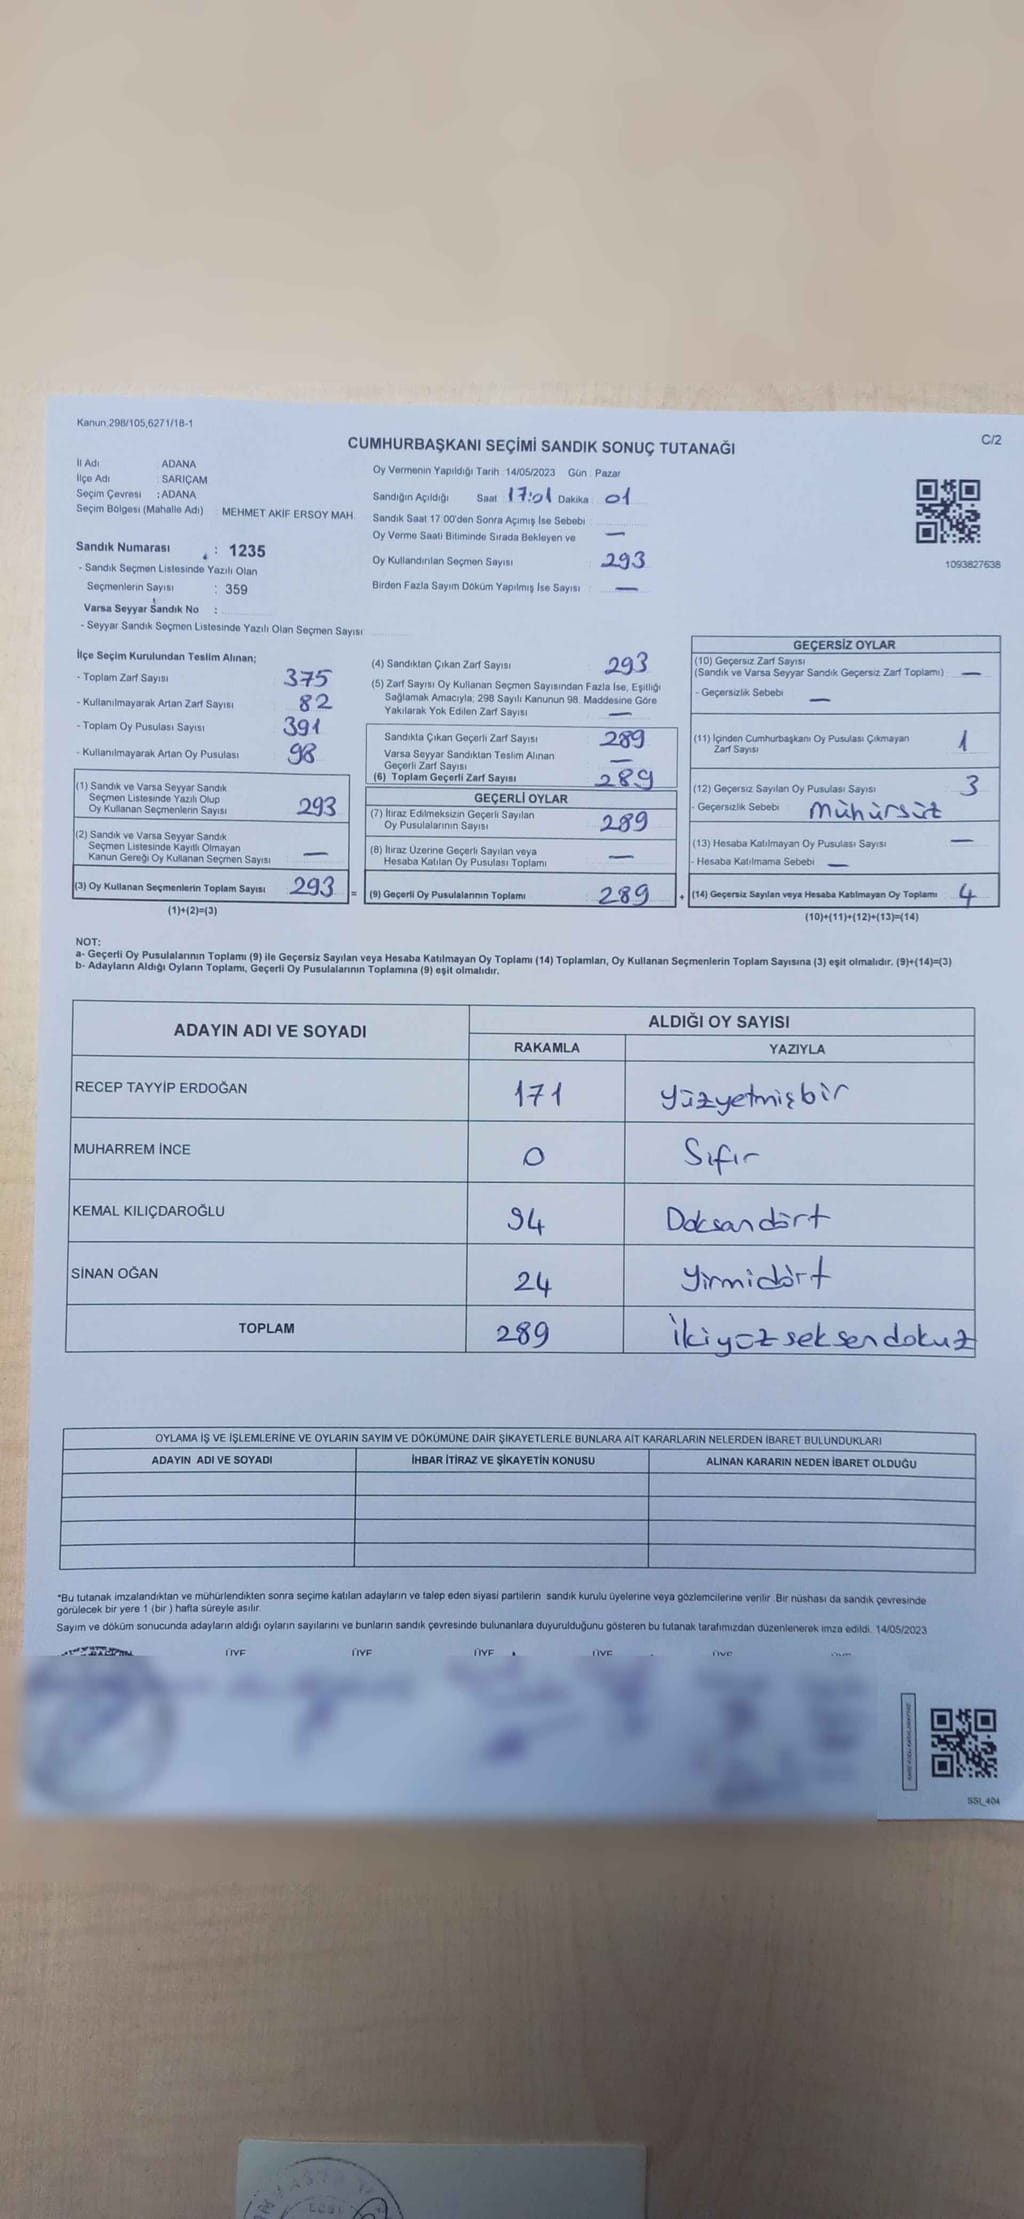 Kanun.298/105,6271/18-1
C/2
CUMHURBAŞKANI SEÇİMİ SANDIK SONUÇ TUTANAĞI
İl Adı ADANA
İlçe Adı : SARIÇAM
Seçim Çevresi : ADANA
Seçim Bölgesi (Mahalle Adı) : MEHMET AKİF ERSOY MAH.
Sandık Numarası : 1235
- Sandık Seçmen Listesinde Yazılı Olan
Seçmenlerin Sayısı : 359
Varsa Seyyar Sandık No :
- Seyyar Sandık Seçmen Listesinde Yazılı Olan Seçmen Sayısı
Oy Vermenin Yapıldığı Tarih : 14/05/2023 Gün : Pazar
Sandığın Açıldığı Saat 17:01 Dakika : 01
Sandık Saat 17:00'den Sonra Açımış İse Sebebi
Oy Verme Saati Bitiminde Sırada Bekleyen ve —
Oy Kullandırılan Seçmen Sayısı : 293
Birden Fazla Sayım Döküm Yapılmış İse Sayısı : —
1093827638
İlçe Seçim Kurulundan Teslim Alınan;
- Toplam Zarf Sayısı 375
- Kullanılmayarak Artan Zarf Sayısı 82
- Toplam Oy Pusulası Sayısı 391
- Kullanılmayarak Artan Oy Pusulası 98
(1) Sandık ve Varsa Seyyar Sandık
Seçmen Listesinde Yazılı Olup
Oy Kullanan Seçmenlerin Sayısı 293
(2) Sandık ve Varsa Seyyar Sandık
Seçmen Listesinde Kayıtlı Olmayan
Kanun Gereği Oy Kullanan Seçmen Sayısı —
(3) Oy Kullanan Seçmenlerin Toplam Sayısı 293 =
(1)+(2)=(3)
(4) Sandıktan Çıkan Zarf Sayısı 293
(5) Zarf Sayısı Oy Kullanan Seçmen Sayısından Fazla İse, Eşitliği
Sağlamak Amacıyla; 298 Sayılı Kanunun 98. Maddesine Göre
Yakılarak Yok Edilen Zarf Sayısı —
Sandıkla Çıkan Geçerli Zarf Sayısı 289
Varsa Seyyar Sandıktan Teslim Alınan
Geçerli Zarf Sayısı —
(6) Toplam Geçerli Zarf Sayısı 289
GEÇERLİ OYLAR
(7) İtiraz Edilmeksizin Geçerli Sayılan
Oy Pusulalarının Sayısı 289
(8) İtiraz Üzerine Geçerli Sayılan veya
Hesaba Katılan Oy Pusulası Toplamı —
(9) Geçerli Oy Pusulalarının Toplamı 289 +
GEÇERSİZ OYLAR
(10) Geçersiz Zarf Sayısı
(Sandık ve Varsa Seyyar Sandık Geçersiz Zarf Toplamı) —
- Geçersizlik Sebebi —
(11) İçinden Cumhurbaşkanı Oy Pusulası Çıkmayan
Zarf Sayısı 1
(12) Geçersiz Sayılan Oy Pusulası Sayısı 3
- Geçersizlik Sebebi Mühürsüz
(13) Hesaba Katılmayan Oy Pusulası Sayısı —
- Hesaba Katılmama Sebebi —
(14) Geçersiz Sayılan veya Hesaba Katılmayan Oy Toplamı 4
(10)+(11)+(12)+(13)=(14)
NOT:
a- Geçerli Oy Pusulalarının Toplamı (9) ile Geçersiz Sayılan veya Hesaba Katılmayan Oy Toplamı (14) Toplamları, Oy Kullanan Seçmenlerin Toplam Sayısına (3) eşit olmalıdır. (9)+(14)=(3)
b- Adayların Aldığı Oyların Toplamı, Geçerli Oy Pusulalarının Toplamına (9) eşit olmalıdır.
ADAYIN ADI VE SOYADI
ALDIĞI OY SAYISI
RAKAMLA YAZIYLA
RECEP TAYYİP ERDOĞAN 171 Yüzyetmişbir
MUHARREM İNCE 0 Sıfır
KEMAL KILIÇDAROĞLU 94 Doksandört
SİNAN OĞAN 24 Yirmidört
TOPLAM 289 İkiyüzseksendokuz
OYLAMA İŞ VE İŞLEMLERİNE VE OYLARIN SAYIM VE DÖKÜMÜNE DAİR ŞİKAYETLERLE BUNLARA AİT KARARLARIN NELERDEN İBARET BULUNDUKLARI
ADAYIN ADI VE SOYADI İHBAR İTİRAZ VE ŞİKAYETİN KONUSU ALINAN KARARIN NEDEN İBARET OLDUĞU
*Bu tutanak imzalandıktan ve mühürlendikten sonra seçime katılan adayların ve talep eden siyasi partilerin sandık kurulu üyelerine veya gözlemcilerine verilir. Bir nüshası da sandık çevresinde
görülecek bir yere 1 (bir) hafta süreyle asılır.
Sayım ve döküm sonucunda adayların aldığı oyların sayılarını ve bunların sandık çevresinde bulunanlara duyurulduğunu gösteren bu tutanak tarafımızdan düzenlenerek imza edildi. 14/05/2023
ÜYE ÜYE ÜYE ÜYE ÜYE
SSI_404